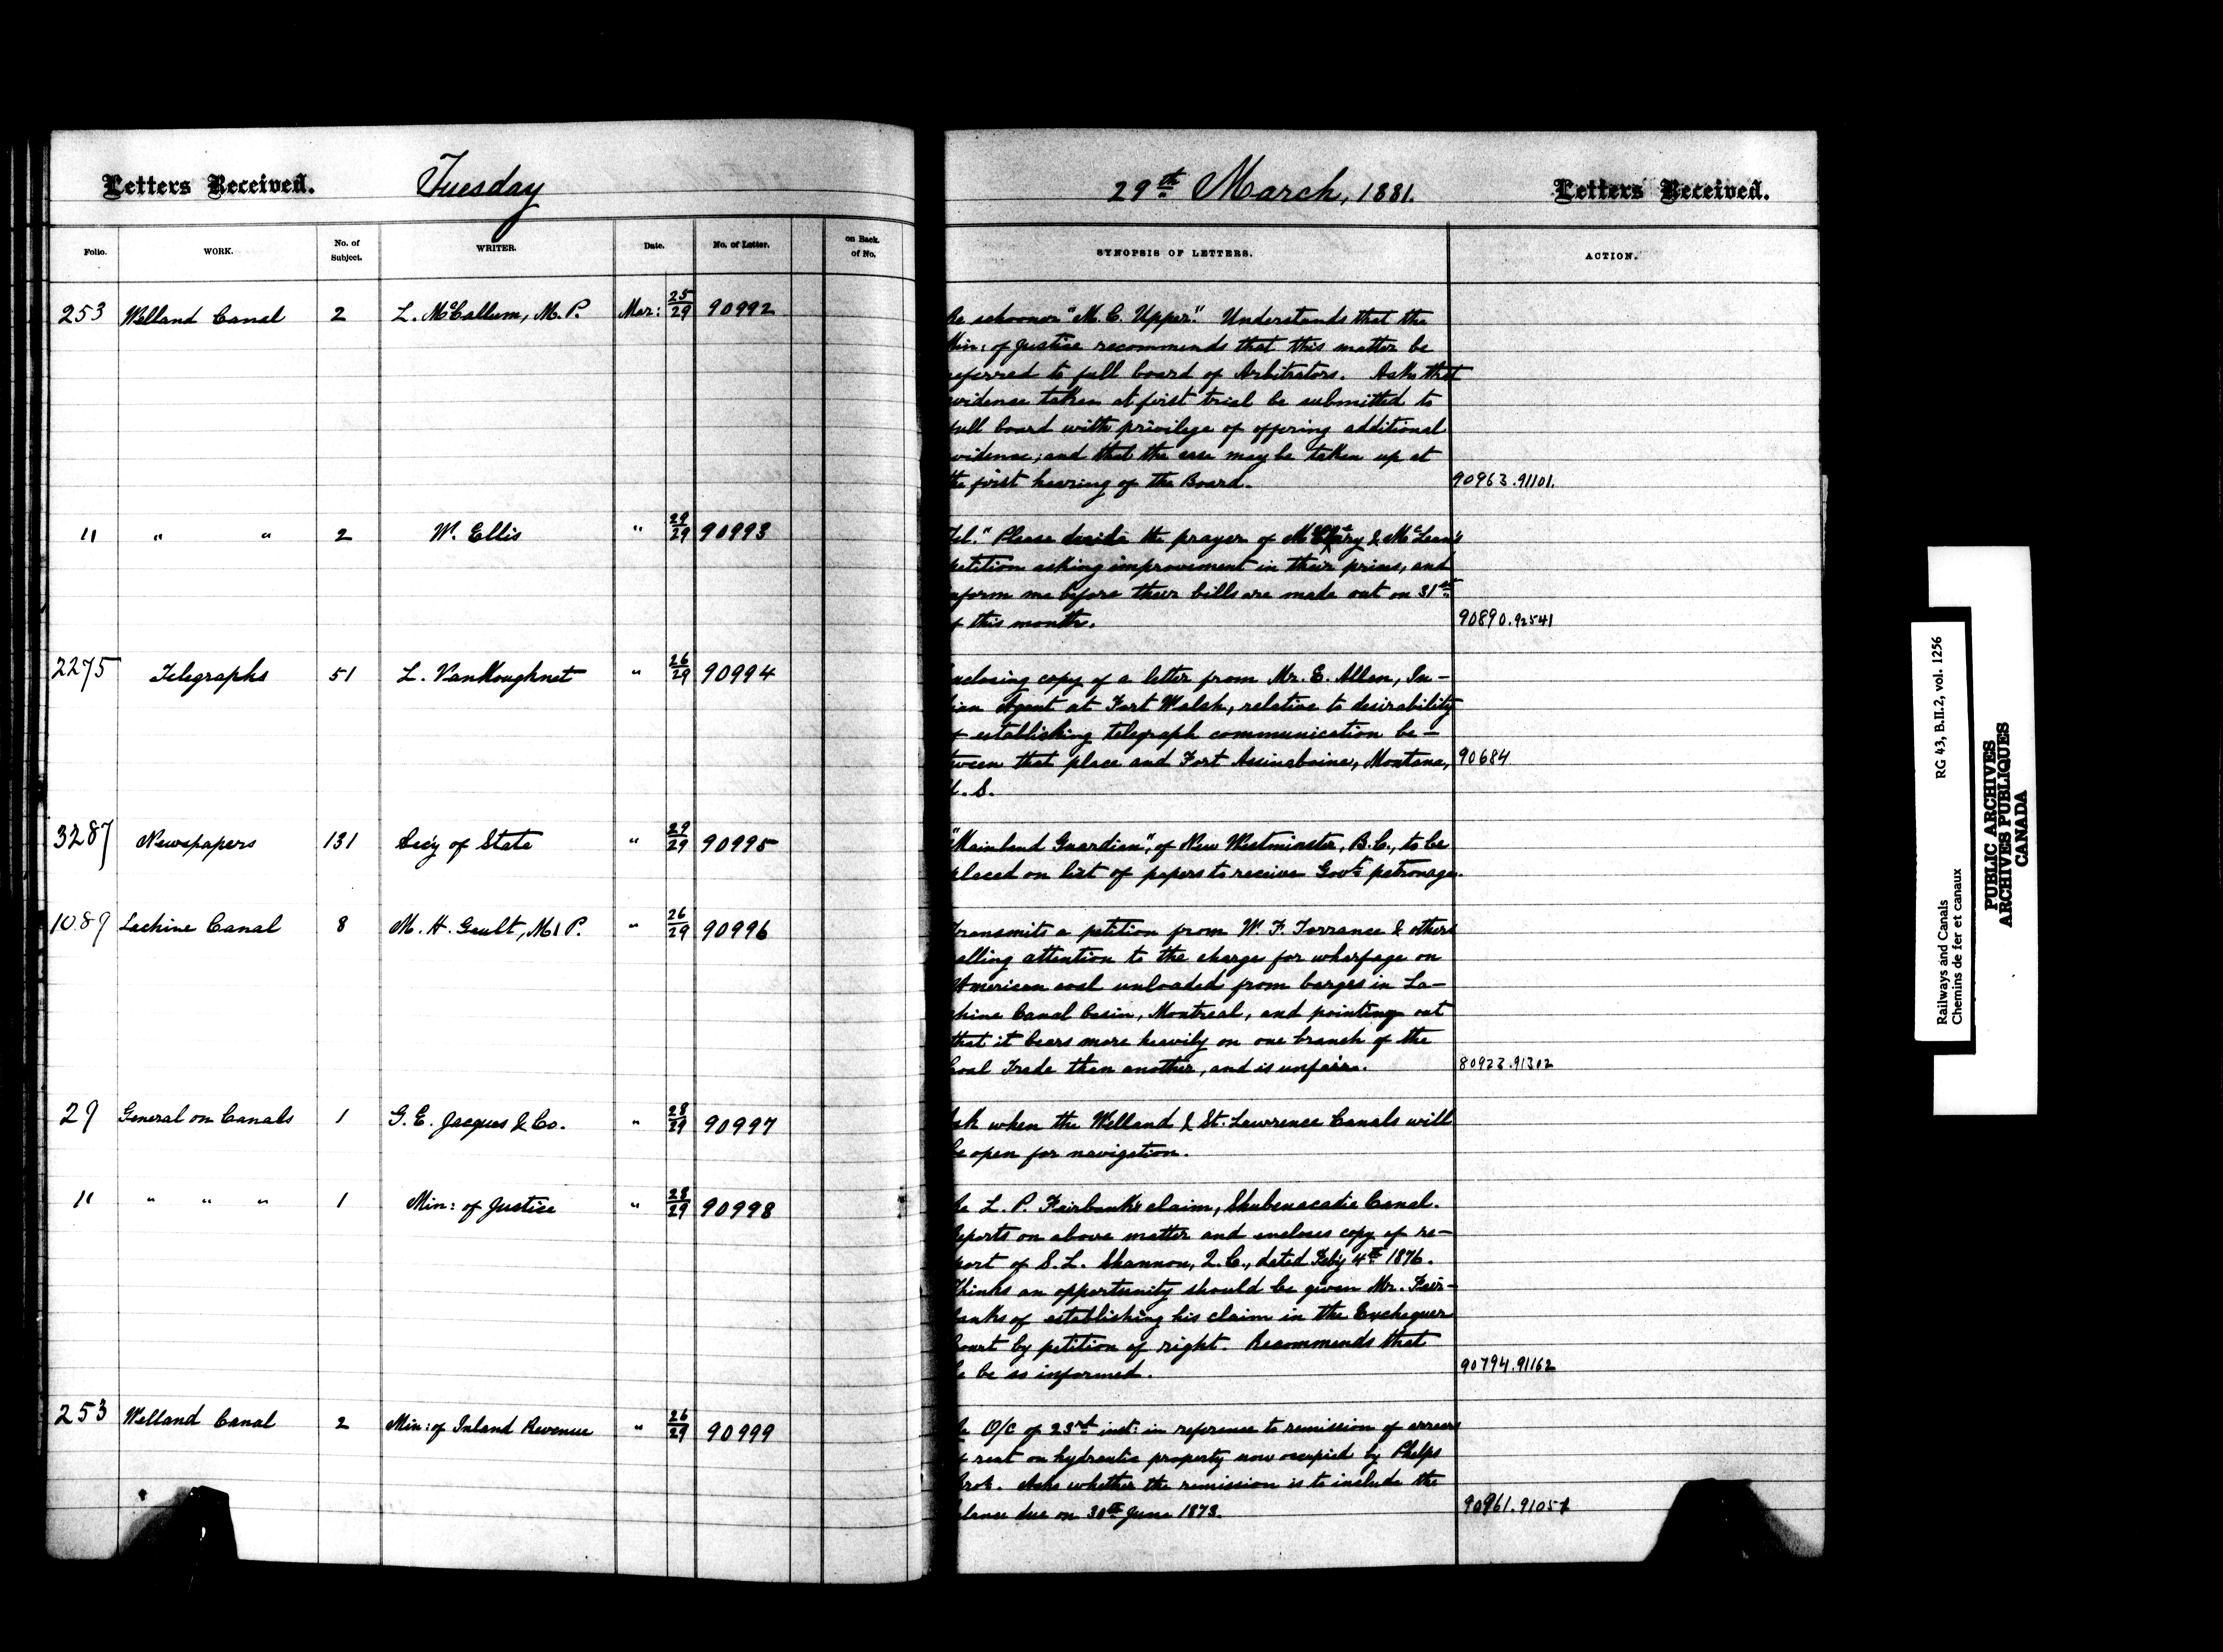 Letters Received. Tuesday
29th March, 1881. Letters Received.
Folio. WORK. No. of Subject. WRITER. Date. No. of Letter. on Back of No.
SYNOPSIS OF LETTERS. ACTION.
253 Welland Canal 2 L. McCallum, M.P. Mar: 25/29 90992
Re schooner "M. C. Upper." Understands that the
Min: of Justice recommends that this matter be
referred to full board of Arbitrators. Asks that
evidence taken at first trial be submitted to
full board with privilege of offering additional
evidence; and that the case may be taken up at
the first hearing of the Board. 90963.91101.
" " " 2 W. Ellis " 29/29 90993
"Tel." Please decide the prayer of & McLean's
petition asking improvement in their prices, and
inform me before their bills are made out on 31st
of this month. 90890.92541
2275 Telegraphs 51 L. VanKoughnet " 26/29 90994
Enclosing copy of a letter from Mr. E. Allen, In-
dian Agent at Fort Walsh, relative to desirability
of establishing telegraph communication be-
tween that place and Fort Assinaboine, Montana, 90684
U.S.
3287 Newspapers 131 Secy of State " 29/29 90995
"Mainland Guardian", of New Westminster, B.C., to be
placed on list of papers to receive Govt patronage.
1089 Lachine Canal 8 M. H. Gault, M.P. " 26/29 90996
Transmits a petition from W. F. Torrance & others
calling attention to the charge for wharfage on
American coal unloaded from barges in La-
chine Canal basin, Montreal, and pointing out
that it bears more heavily on one branch of the
Coal Trade than another, and is unfair. 80923.91302
29 General on Canals 1 G. E. Jacques & Co. " 28/29 90997
Ask when the Welland & St. Lawrence Canals will
be open for navigation.
" " " " 1 Min: of Justice " 28/29 90998
Re L. P. Fairbank's claim, Shubenacadie Canal.
Reports on above matter and encloses copy of re-
port of S. L. Shannon, Q.C., dated Feby 4th 1876.
Thinks an opportunity should be given Mr. Fair-
banks of establishing his claim in the Exchequer
Court by petition of right. Recommends that
he be so informed. 90794.91162
253 Welland Canal 2 Min: of Inland Revenue " 26/29 90999
Re O/C of 23rd inst: in reference to remission of arrears
of rent on hydraulic property now occupied by Phelps
Bros. Asks whether the remission is to include the
balance due on 30th June 1873. 90961.91057
Railways and Canals RG 43, B.II.2, vol. 1256
Chemins de fer et canaux
PUBLIC ARCHIVES
ARCHIVES PUBLIQUES
CANADA